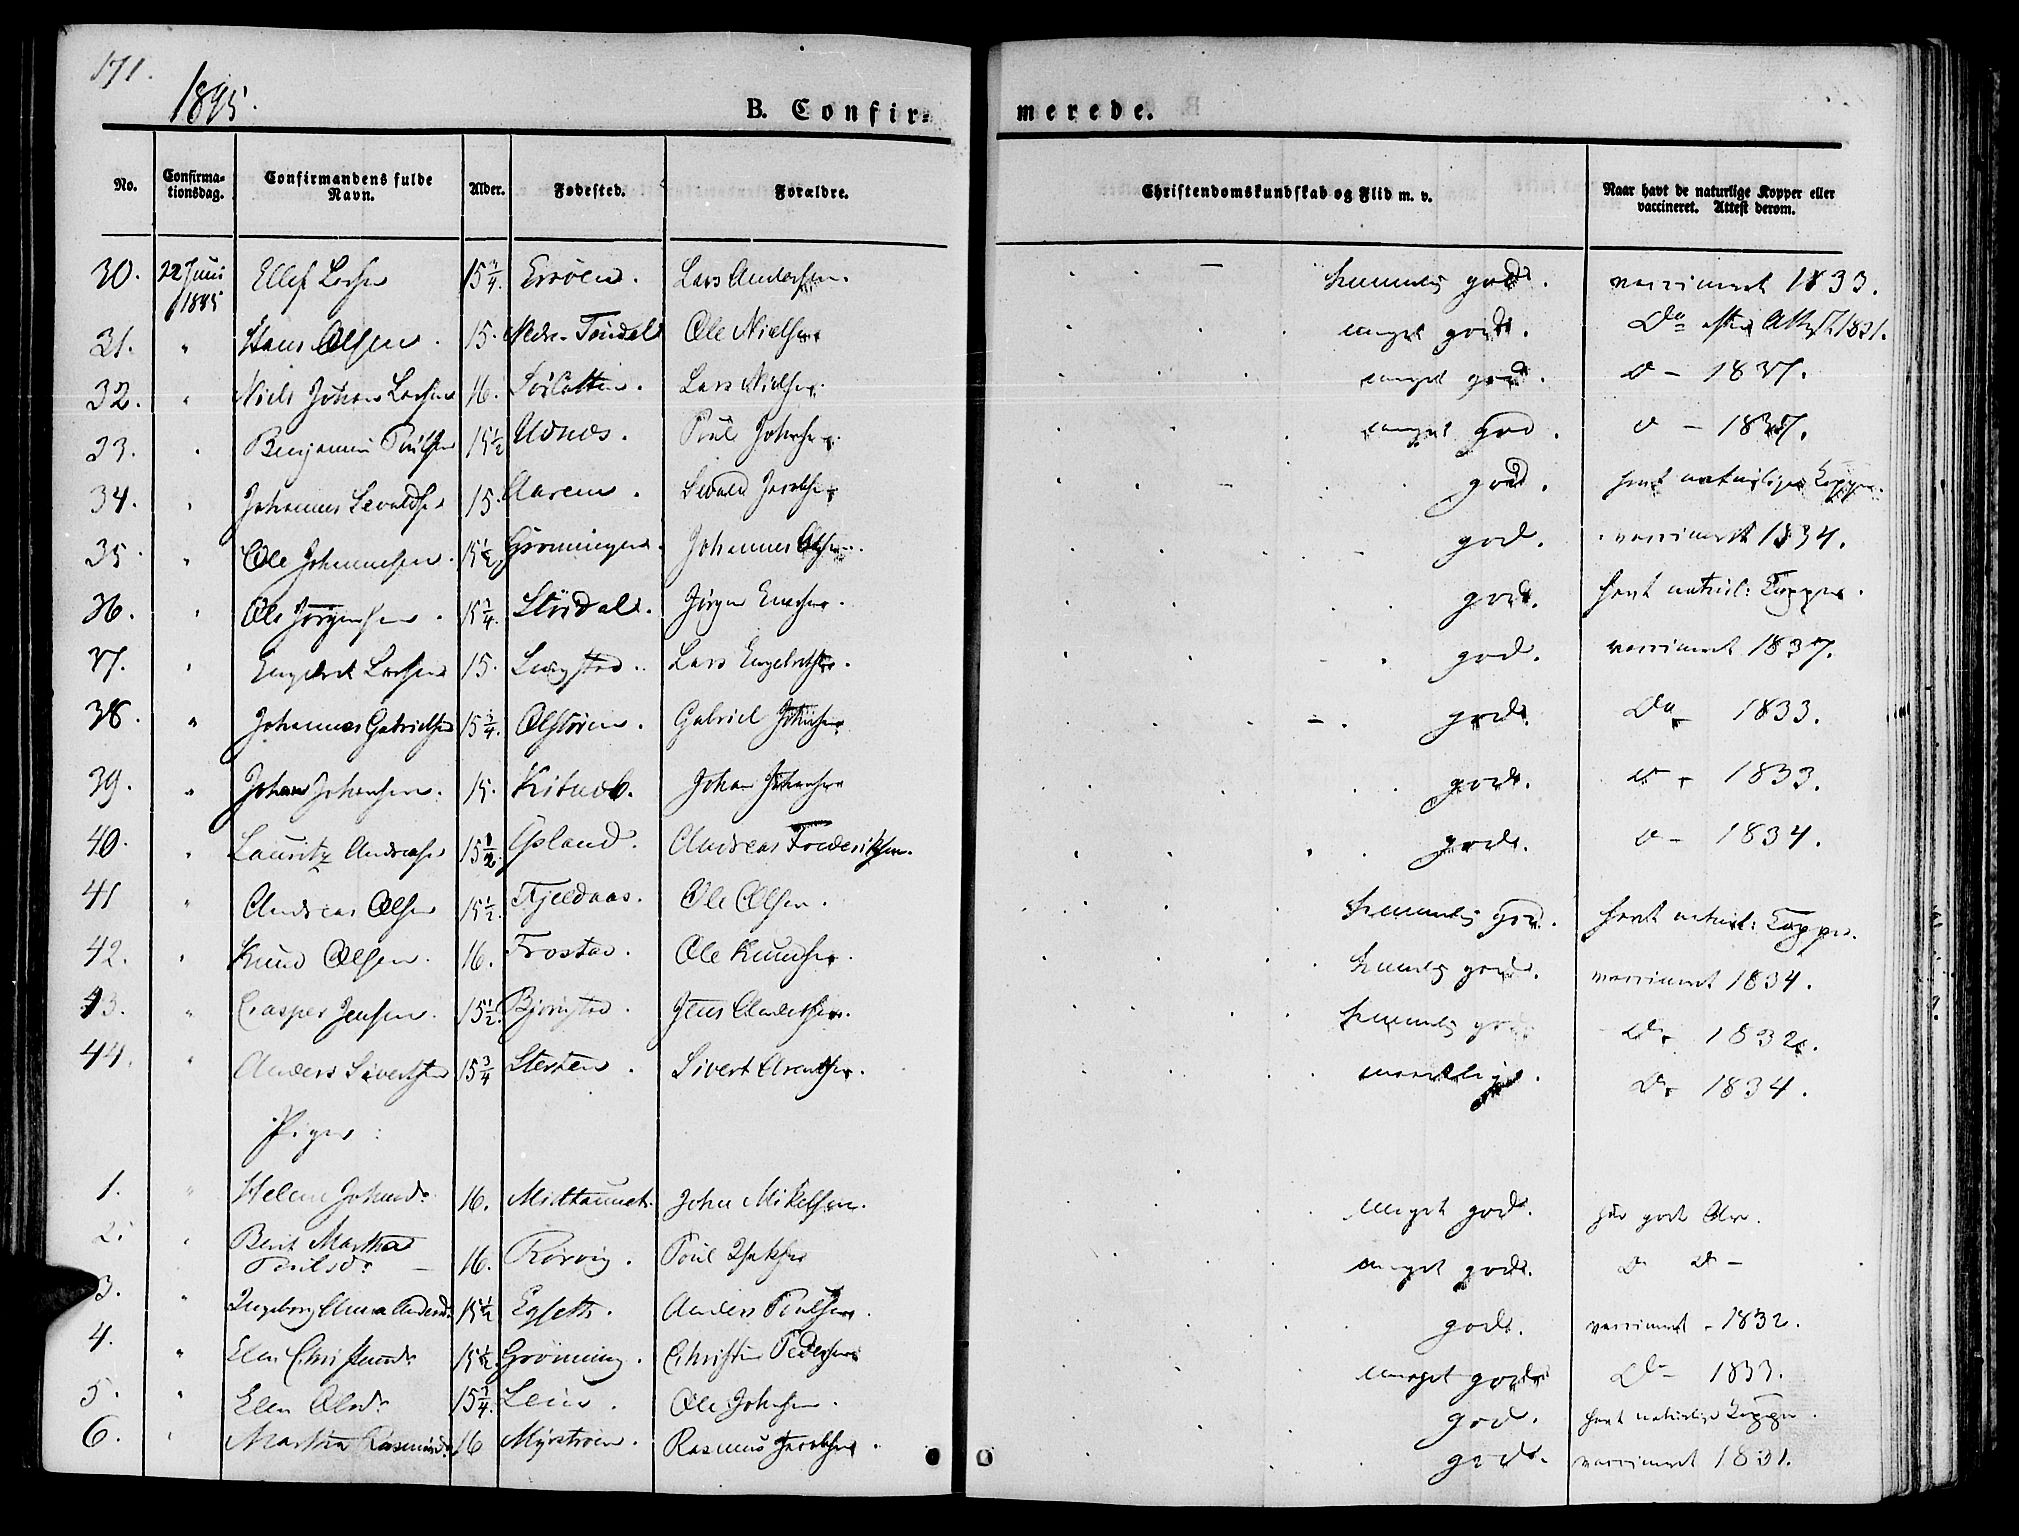 171.
1845.
B. Confirmerede.
No. Confirmationsdag. Confirmandens fulde Navn. Alder. Fødested. Forældre. Christendomskundskab og Flid m. v. Naar havt de naturlige Kopper eller vaccineret. Attest derom.
30. 22 Juni 1845 Ellef Larsen 15 3/4. Lars Andersen. temmelig god. vaccineret 1833.
31. " Hans Olsen. 15. Nedre-Tøndal Ole Nielsen meget god. Do efter Attest 1831.
32. " Niels Johan Larsen 16. Lars Nielsen. meget god. D - 1837.
33. " Benjamin Poulsen 15 1/2 Udnæs. Poul Johnsen. meget god. D - 1837.
34. " Johannes Sivaldsen 15. Aarem. Sivald Jacobsen god. havt naturlige Kopper.
35. " Ole Johannesen. 15 1/2. Grønningen. Johannes Olsen. god. vaccineret 1834.
36. " Ole Jørgensen. 15 1/4 Størdal. Jørgen god. havt naturl: Kopper.
37. " Engebret Larsen 15. Lars Engebretsen. god. vaccineret 1837.
38. " Johannes Gabrielsen 15 3/4. Gabriel Johnsen god. Do 1833.
39. " Johan Johansen. 15. Johan Johansen god. D - 1833.
40. " Lauritz Andreasen 15 1/2. Opland. Andreas Frederiksen. god. D - 1834.
41 " Andreas Olsen 15 1/2. Fjeldaas. Ole Olsen. temmelig god. havt naturl: Kopper.
42. " Knud Olsen. 16. Frostad. Ole Knudsen. temmelig god. vaccineret 1834.
43. " Casper Jensen. 15 1/2. Jens Andersen. temmelig god Do 1832.
44. " Anders Sivertsen 15 3/4 Sterten. Sivert Arentsen. maadelig. Do 1834.
Piger:
1. " Helene Johnsd. 16. Midthaunet. John Mikelsen. meget god. har gode Ar.
2. " Berit Martha Poulsd. 16. Rørvig. Poul Isaksen meget god. D D -
3. " Ingeborg Anna Andersd. 15 1/2 Egseth. Anders Poulsen. god. vaccineret - 1832.
4. " Elen Christensd. 15 1/2. Grønning. Christen Pedersen meget god Do - 1833.
5. " Elen Olsd. 15 1/4. Lein. Ole Johnsen. god. havt naturlige Kopper.
6. " Martha Rasmusd. 16 Myrstrøen. Rasmus Jacobsen. god. vaccineret 1831.